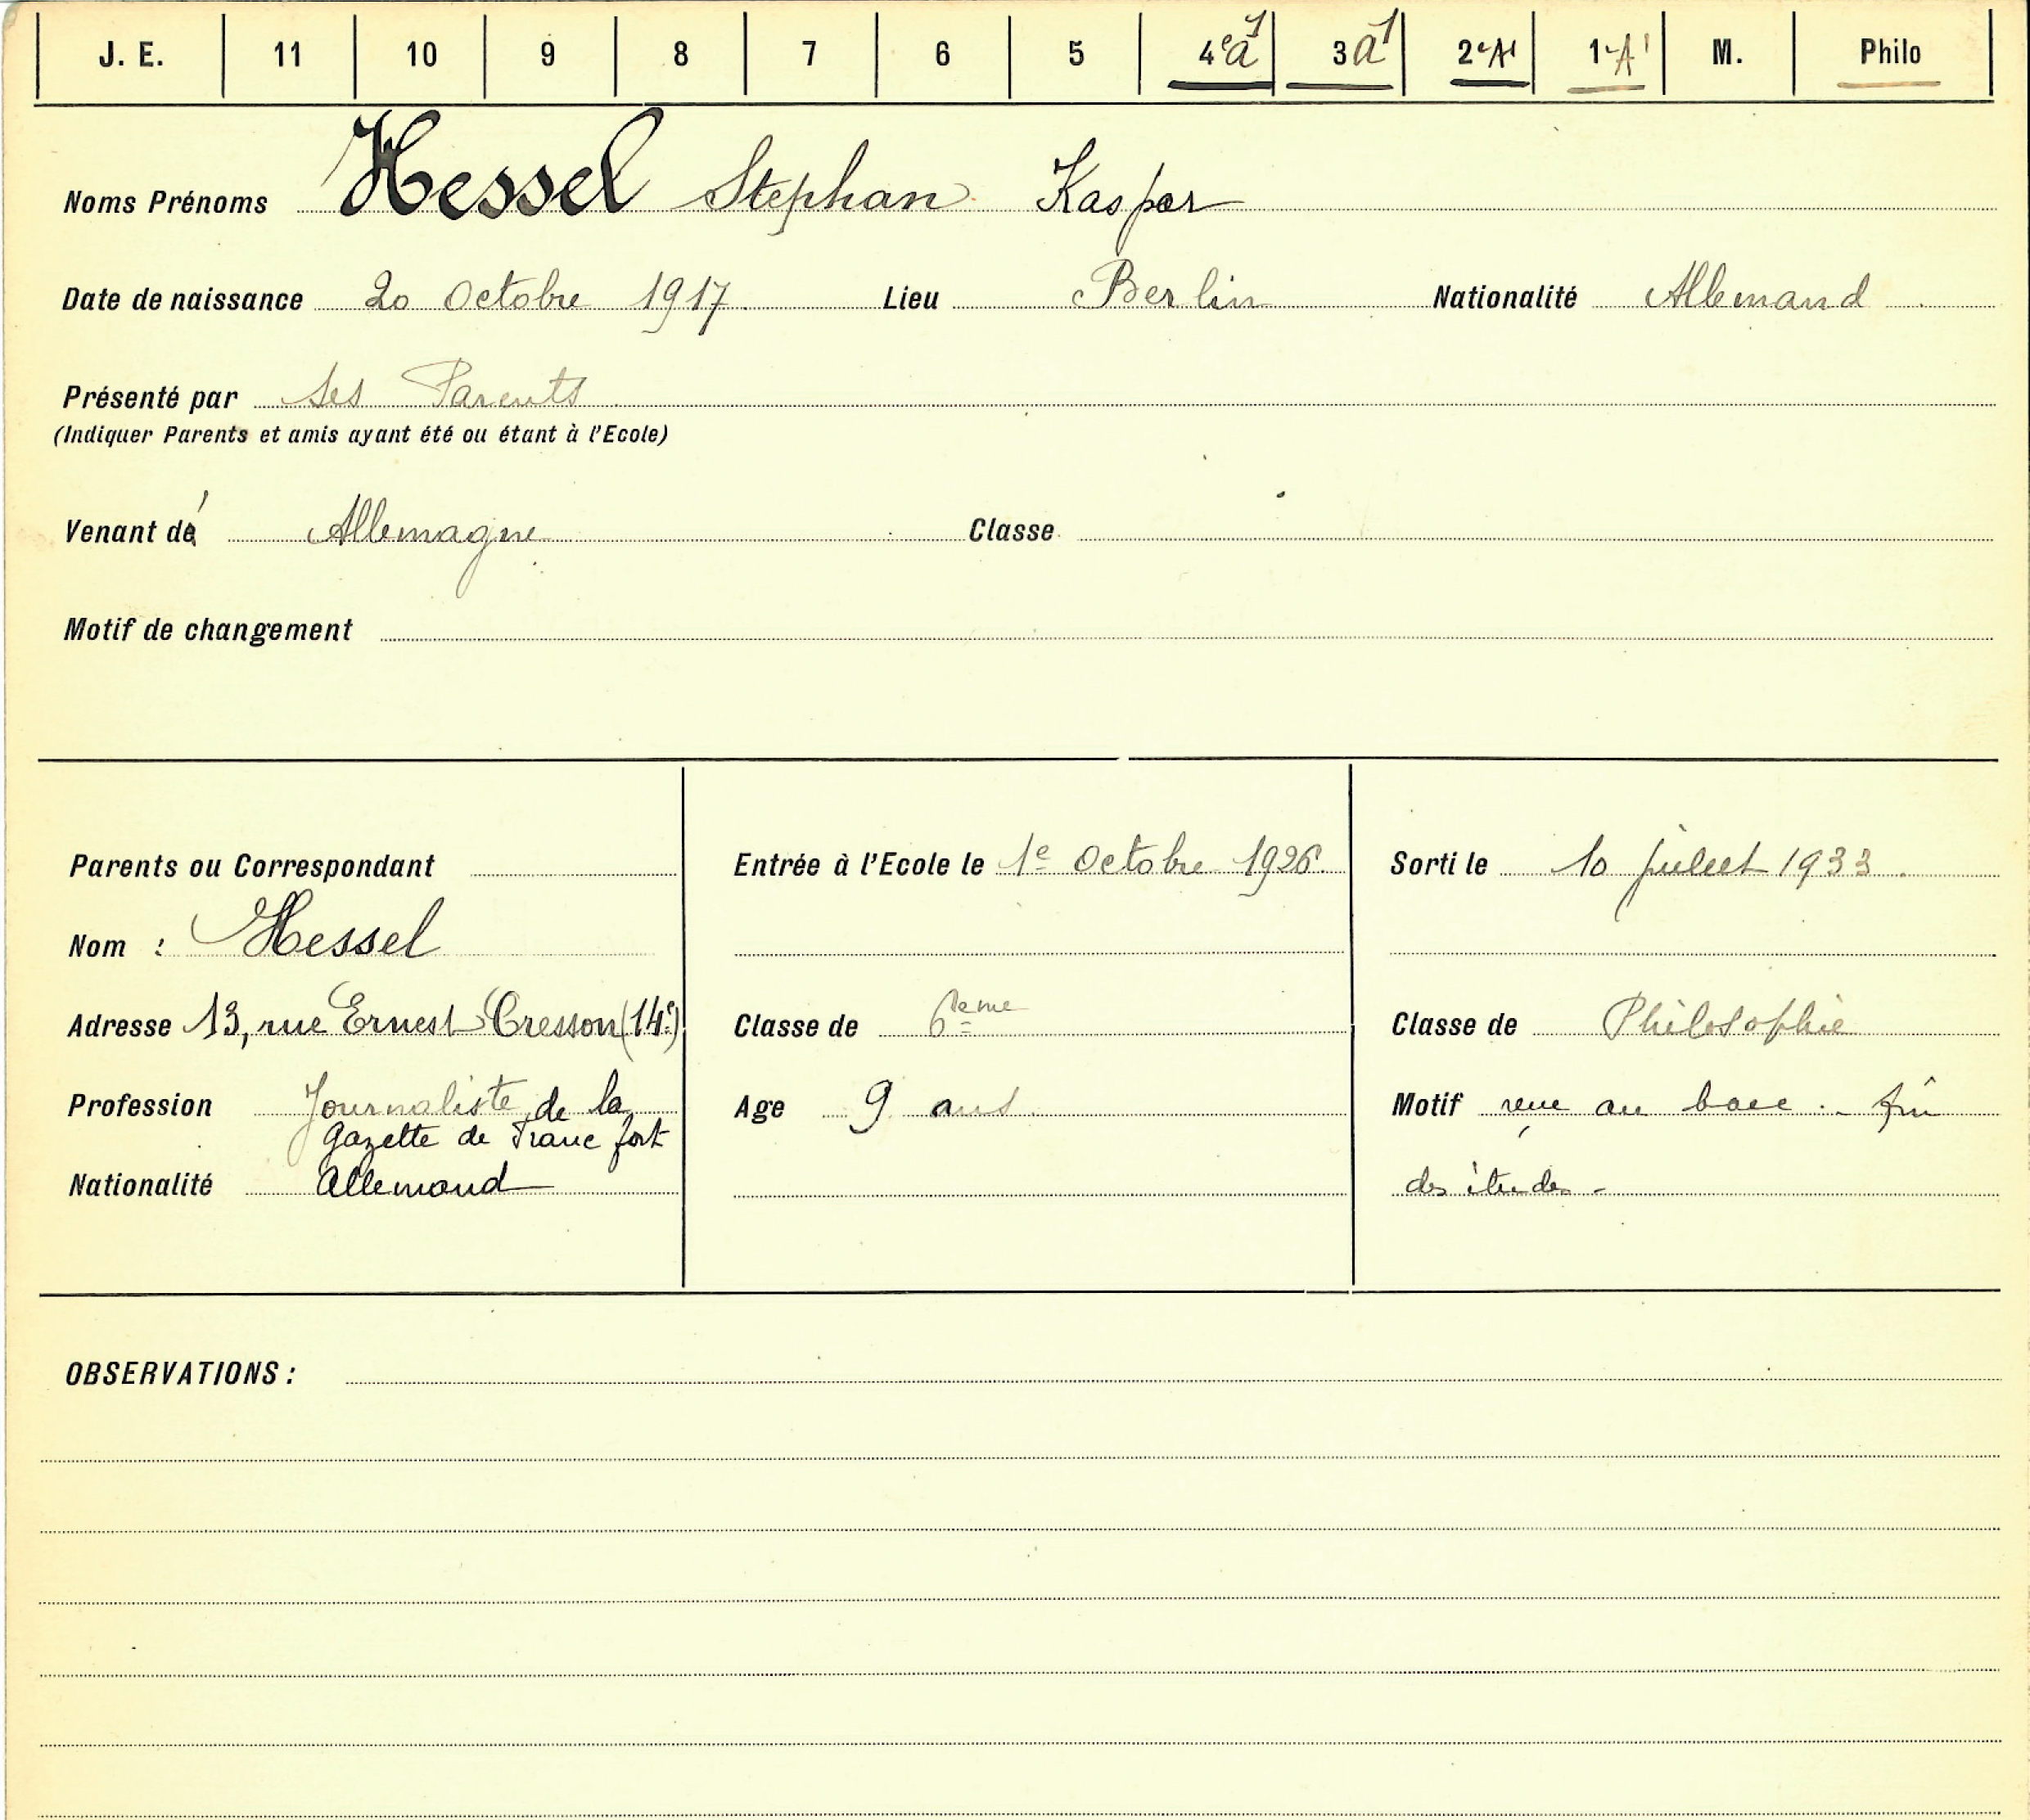 J. E. 11 10 9 8 7 6 5 4eA1 3A1 2eA1 1eA1 M. Philo
Noms Prénoms Hessel Stephan Kaspar
Date de naissance 20 Octobre 1917 Lieu Berlin Nationalité Allemand
Présenté par ses Parents
(Indiquer Parents et amis ayant été ou étant à l'Ecole)
Venant d' Allemagne Classe
Motif de changement
Parents ou Correspondant
Nom : Hessel
Adresse 13, rue Ernest Cresson (14e)
Profession Journaliste de la
gazette de Francfort
Nationalité Allemand
Entrée à l'Ecole le 1e Octobre 1926
Classe de 6ième
Age 9 ans
Sorti le 10 juillet 1933.
Classe de Philosophie
Motif au bacc. - fin
des études -
OBSERVATIONS :